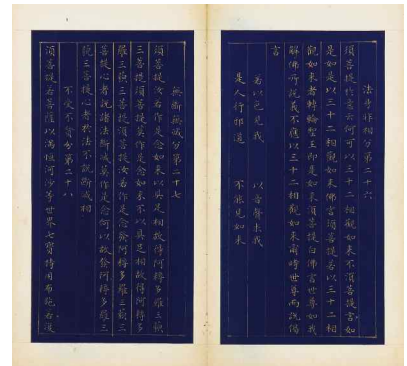 法身非相分第二十六
須菩提於意云何可以三十二相觀如來不須菩提言如
是如是以三十二相觀如來佛言須菩提若以三十二相
觀如來者轉輪聖王即是如來須菩提白佛言世尊如我
解佛所說義不應以三十二相觀如來爾時世尊而說偈
言
若以色見我 以音聲求我
是人行邪道 不能見如來
無斷無滅分第二十七
須菩提汝若作是念如來以具足相故得阿耨多羅三藐
三菩提須菩提莫作是念如來不以具足相故得阿耨多
羅三藐三菩提須菩提汝若作是念發阿耨多羅三藐三
菩提心者說諸法斷滅莫作是念何以故發阿耨多羅三
藐三菩提心者於法不說斷滅相
不受不貪分第二十八
須菩提若菩薩以滿恒河沙等世界七寶持用布施若復